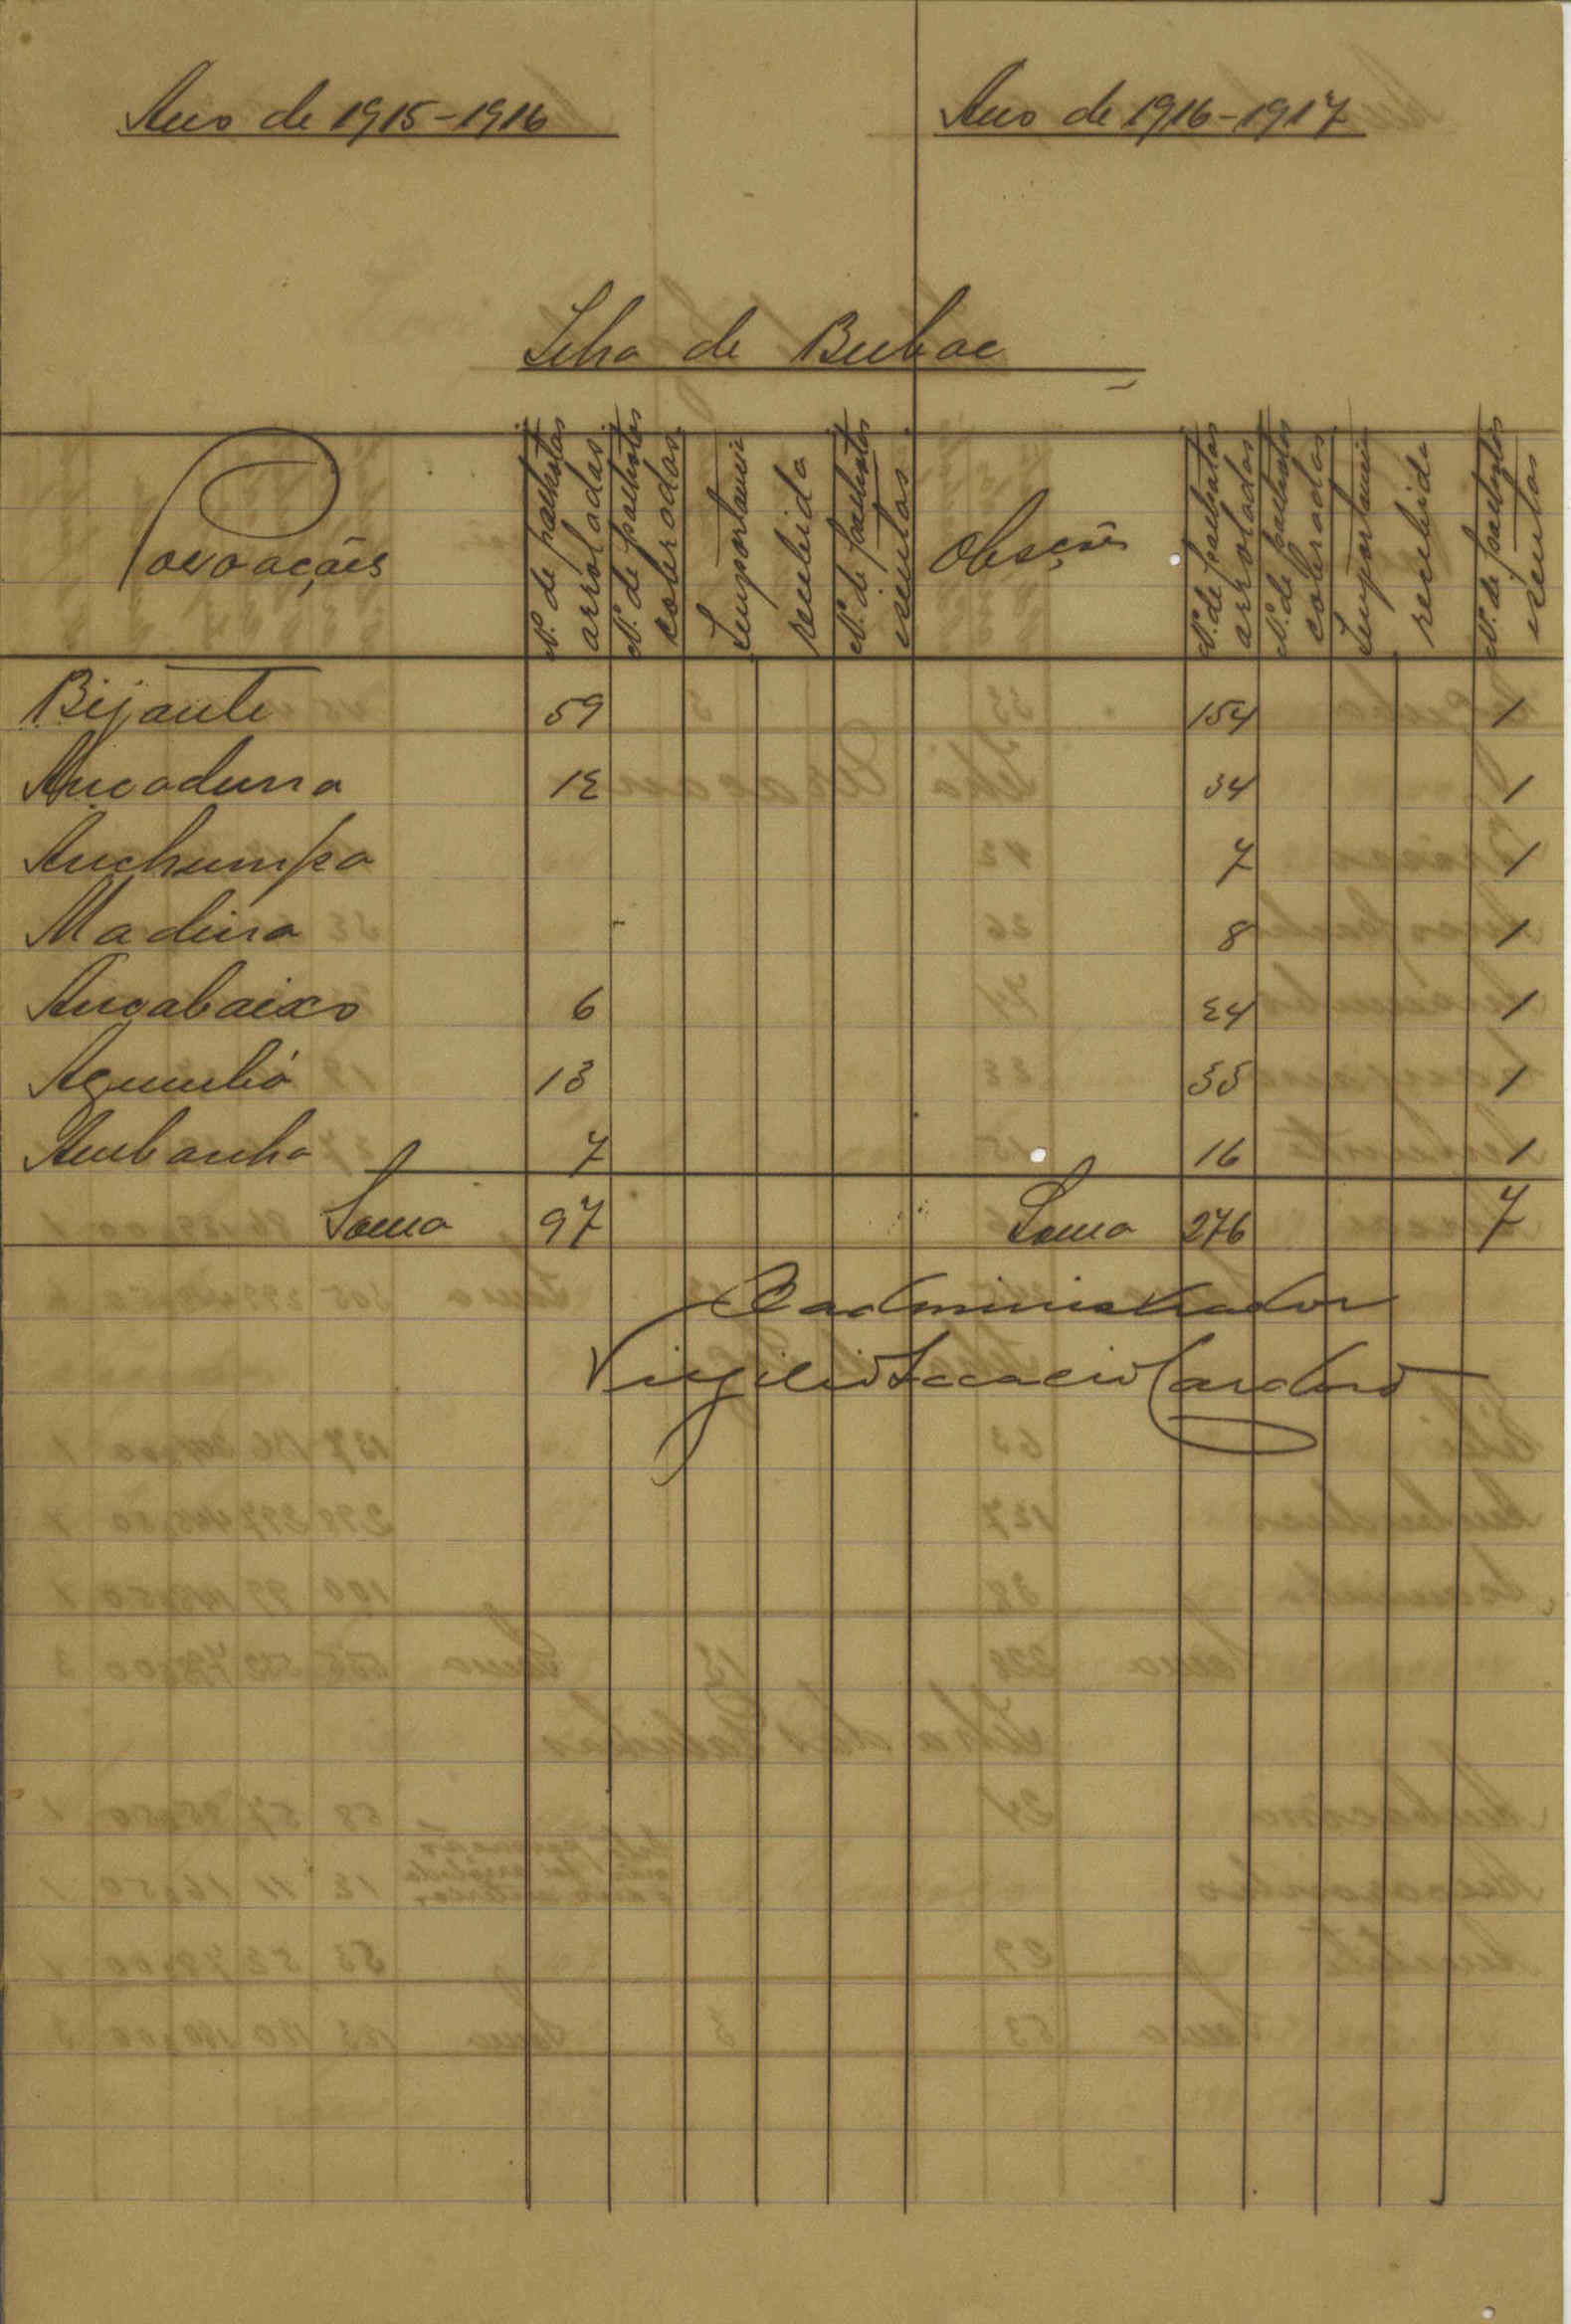 Ano de 1915-1916
Ano de 1916-1917
Ilha de Bubac
Povoações
Nº. de palhotas arroladas
Nº. de palhotas cobradas
Importancia recebida
Nº. de palhotas isentas
Obsções
Nº. de palhotas arroladas
Nº. de palhotas cobradas
Importancia recebida
Nº. de palhotas isentas
Bijante 59 154 1
Ancaduna 12 34 1
Anchumpa 7 1
Madina 8 1
Ancabaixo 6 24 1
Agumbá 13 33 1
Ambanha 7 16 1
Soma 97 Soma 276 7
O administrador
Virgilio Accacio Cardoso